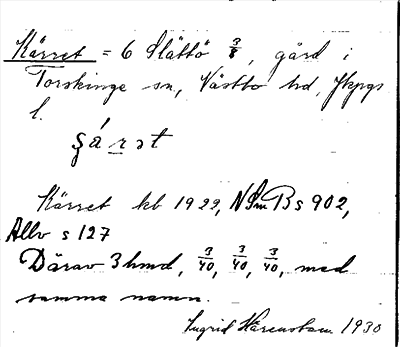 Kärret = 6 Slättö 3/8, gård i
Torskinge sn, Västbo hd, Jkpgs
l.
şá r ət
Kärret kb 1922, NSmB s 902,
Allv s 127
Därav 3 hmd, 3/40, 3/40, 3/40, med
samma namn.
Ingrid Härenstam. 1930